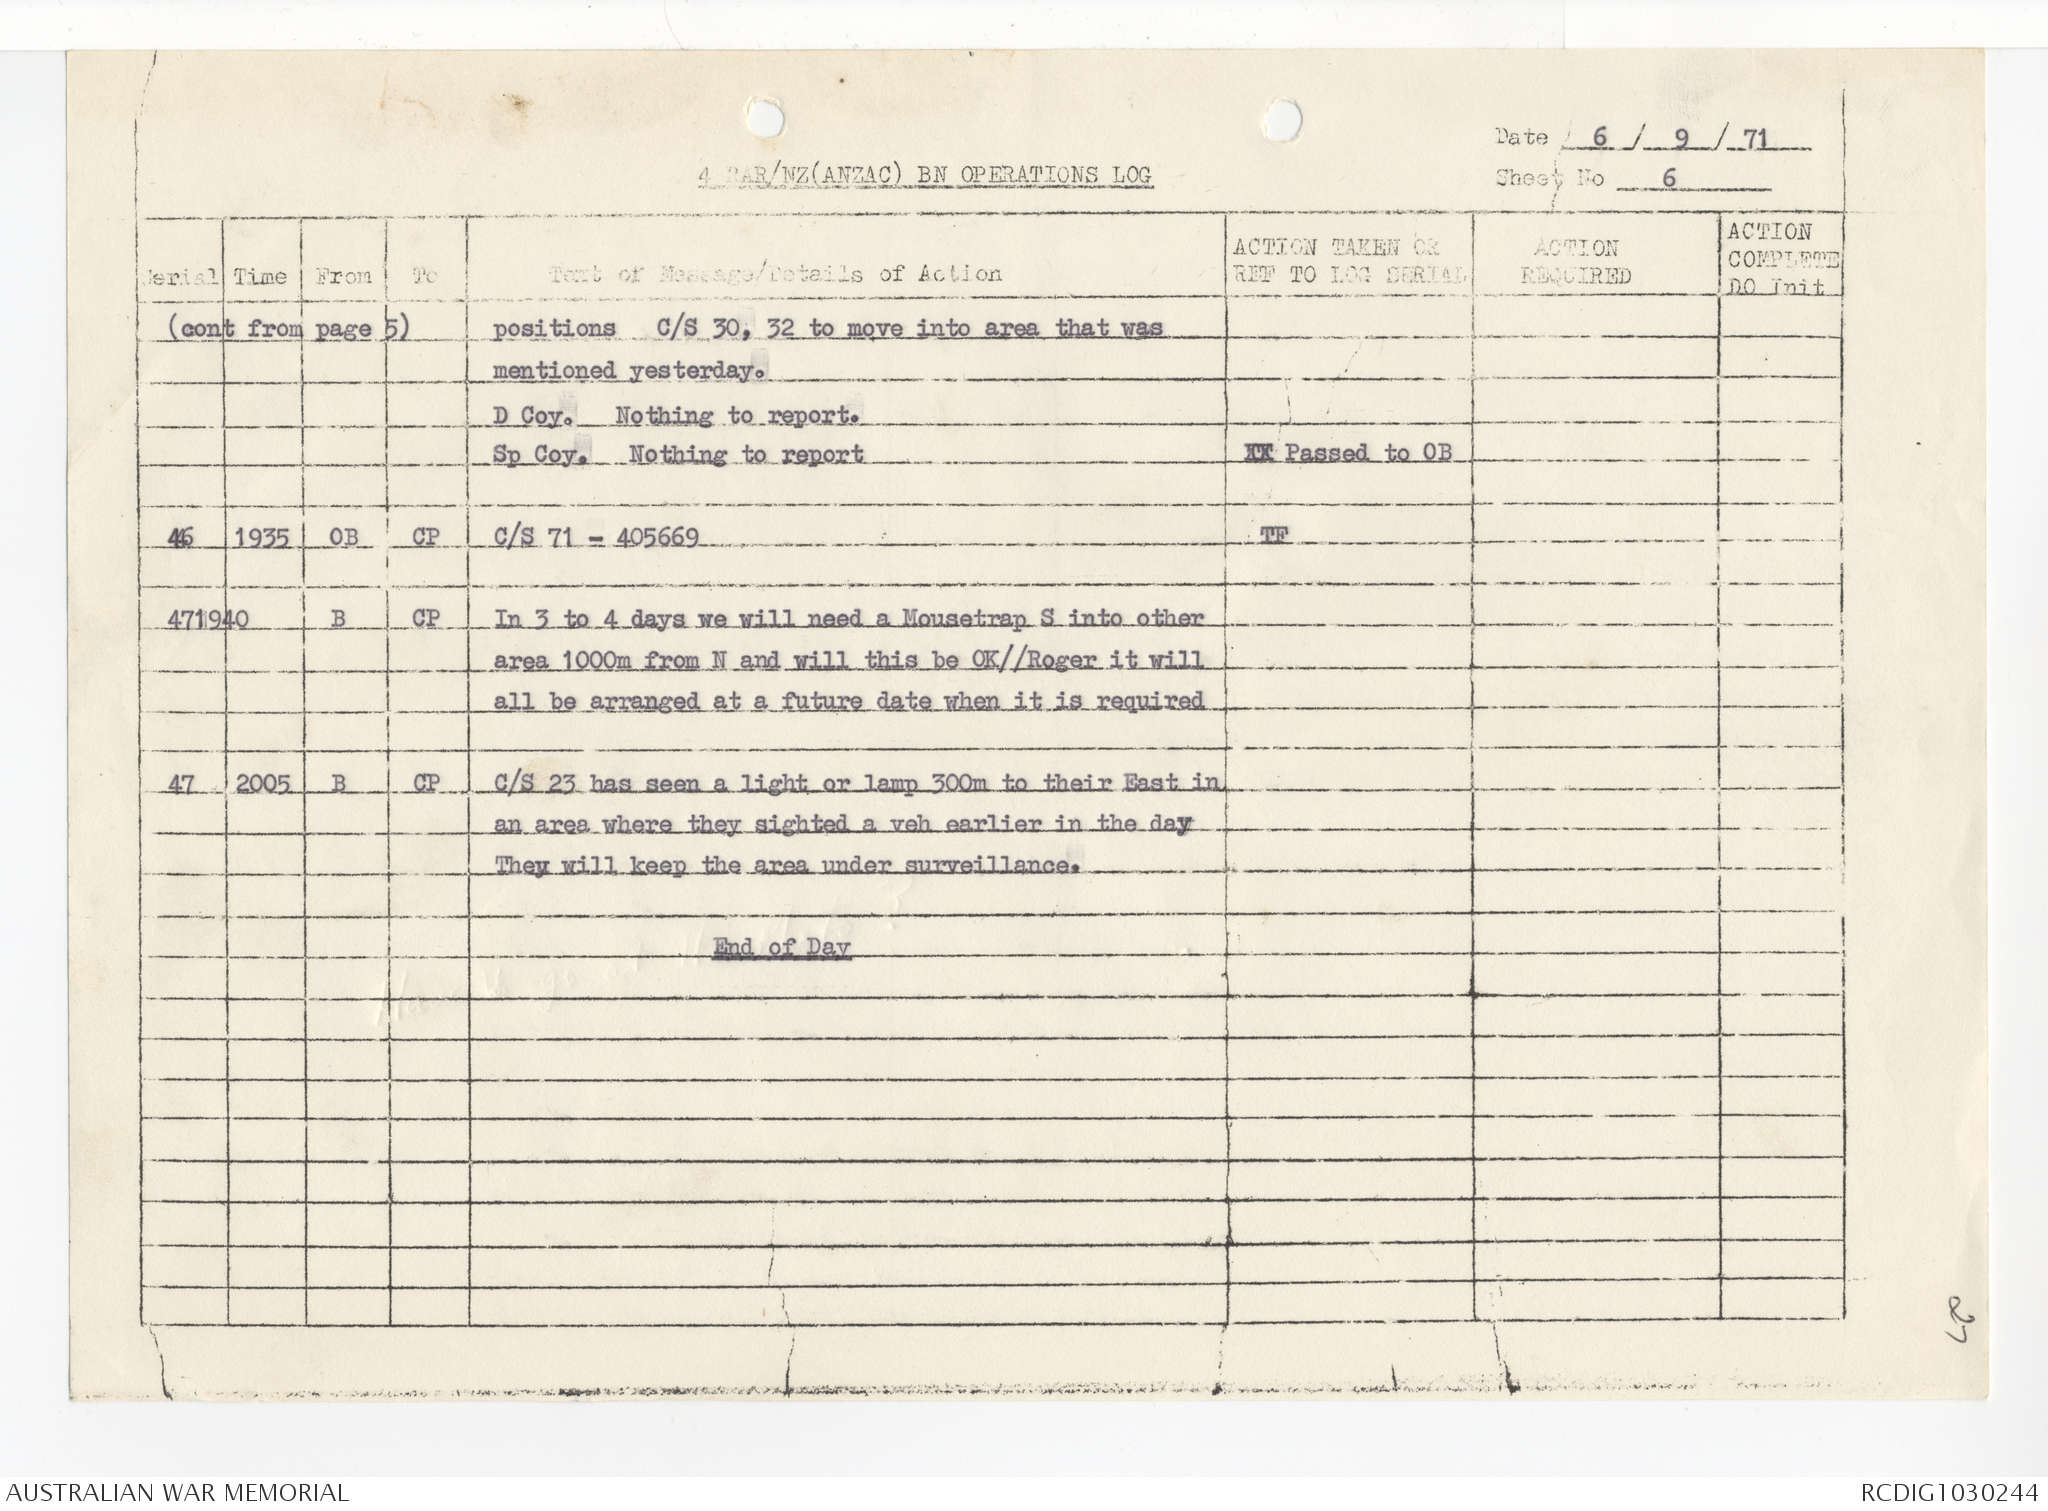 Date 6 / 9 / 71
4 RAR/NZ(ANZAC) BN OPERATIONS LOG
Sheet No 6
Serial Time From To Text of Message/Details of Action ACTION TAKEN OR REF TO LOG SERIAL ACTION REQUIRED ACTION COMPLETE DO Init
(cont from page 5) positions C/S 30, 32 to move into area that was
mentioned yesterday.
D Coy. Nothing to report.
Sp Coy. Nothing to report XX Passed to OB
46 1935 OB CP C/S 71 - 405669 TF
471940 B CP In 3 to 4 days we will need a Mousetrap S into other
area 1000m from N and will this be OK//Roger it will
all be arranged at a future date when it is required
47 2005 B CP C/S 23 has seen a light or lamp 300m to their East in
an area where they sighted a veh earlier in the day
They will keep the area under surveillance.
End of Day
27
AUSTRALIAN WAR MEMORIAL RCDIG1030244